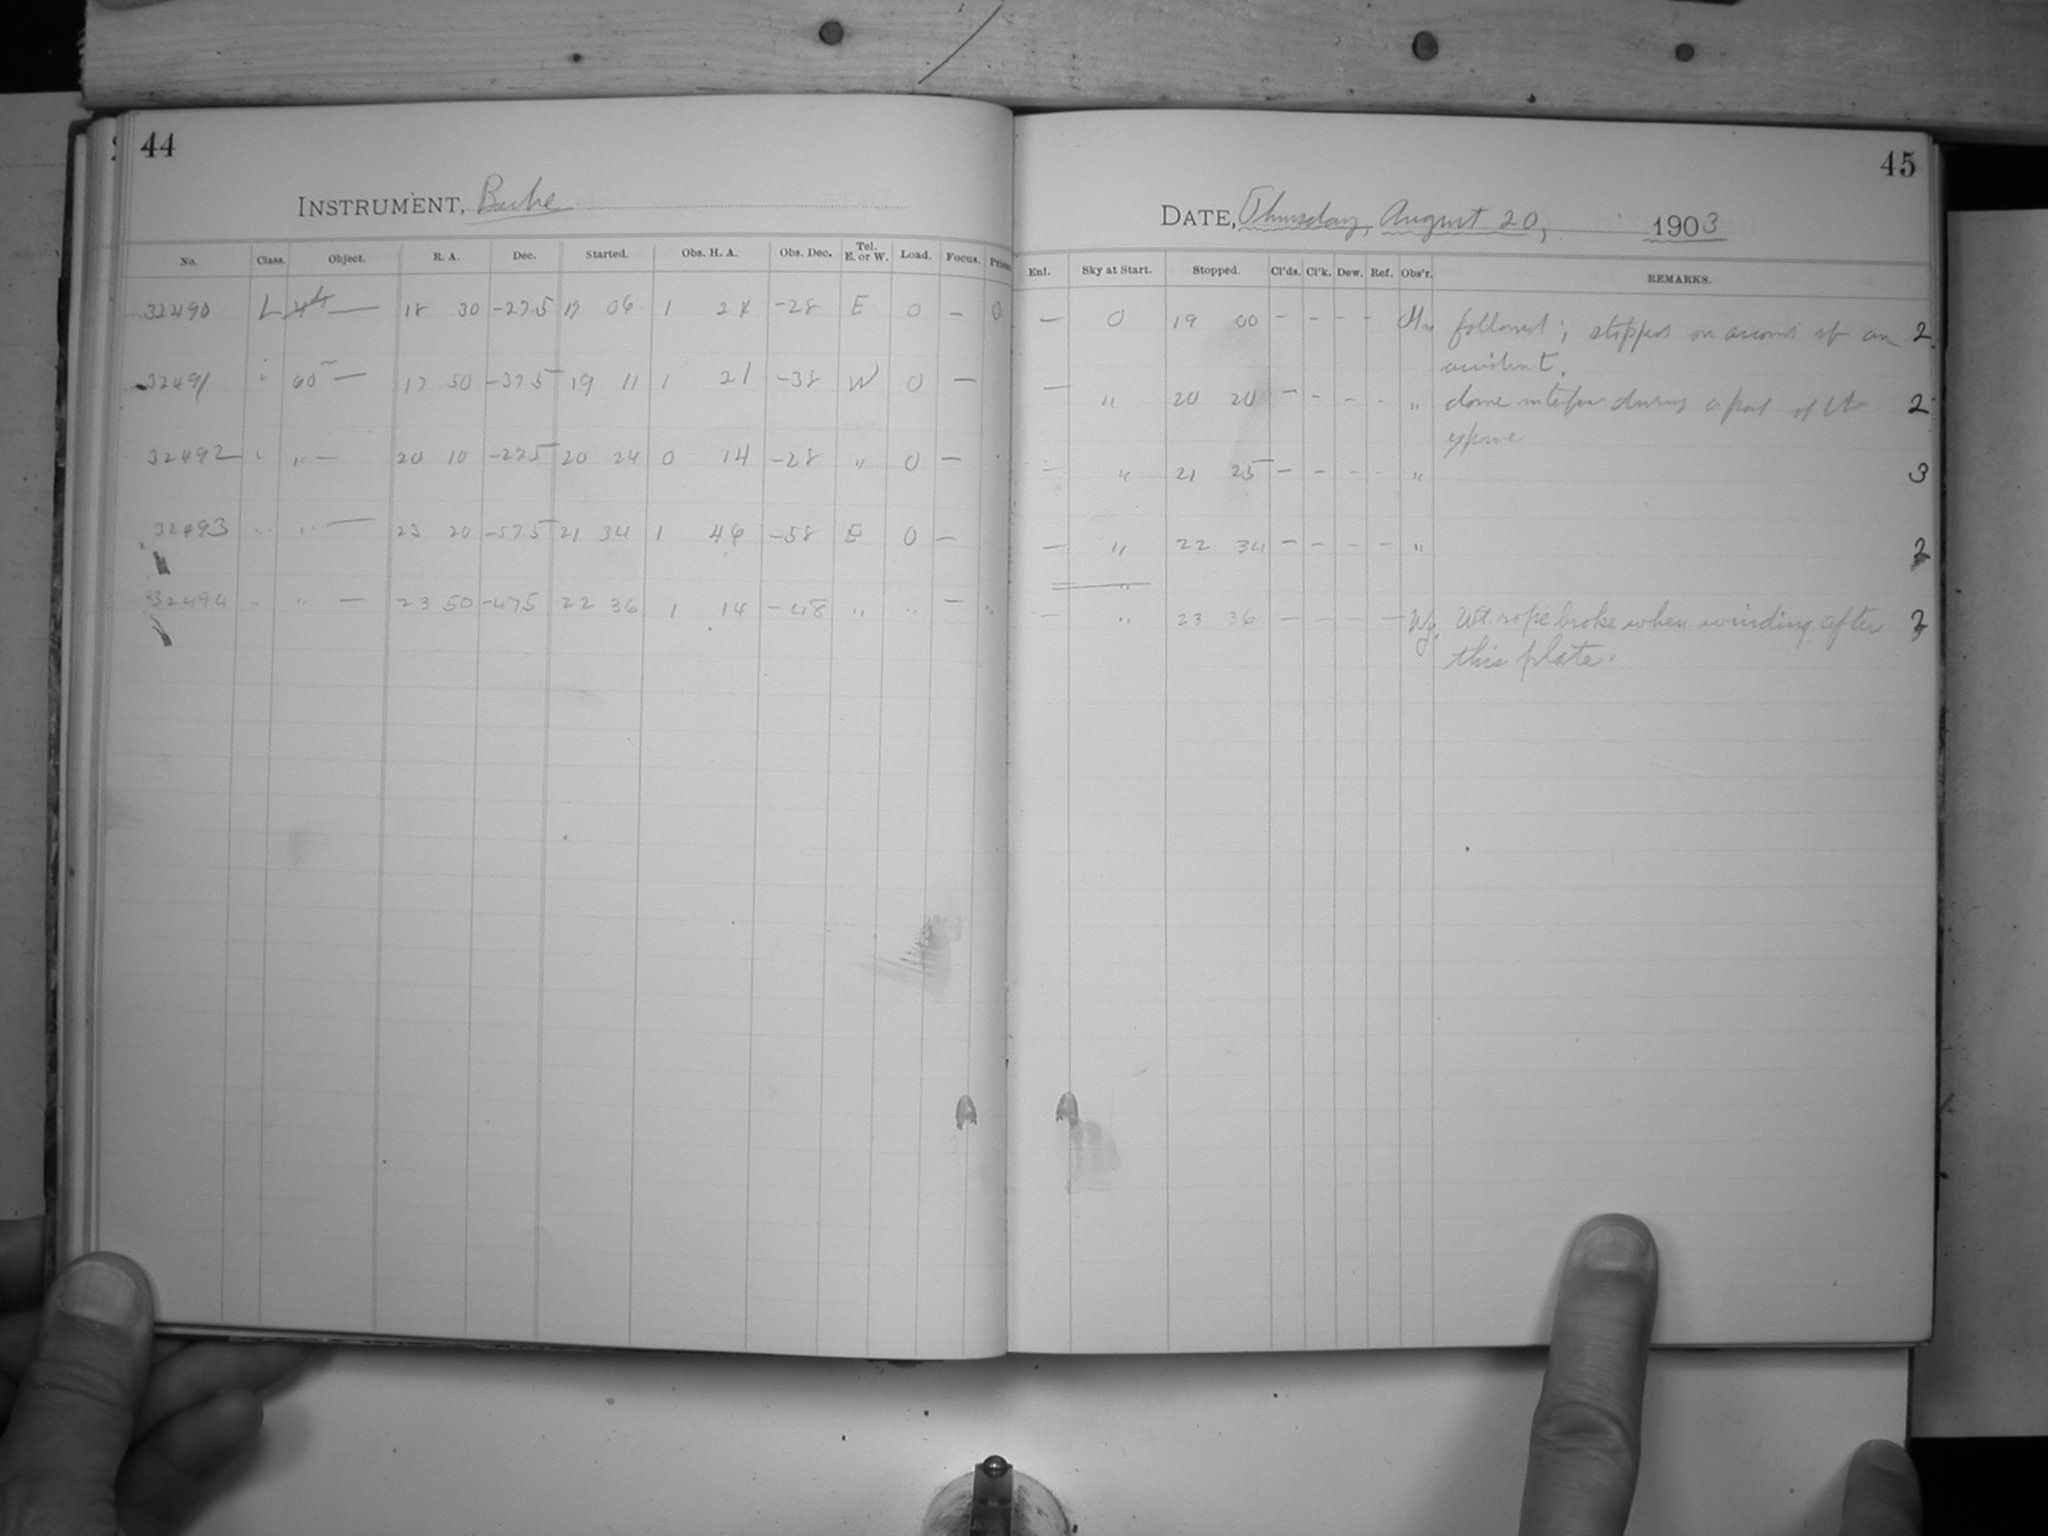 44
INSTRUMENT, Bache
No. Class. Object. R. A. Dec. Started. Obs. H. A. Obs. Dec. Tel. E. or W. Load. Focus. Prism
32490 L — 18 30 -27.5 17 06 1 24 -28 E 0 — 0
32491 " 60m — 17 50 -37.5 19 11 1 21 -38 W 0 —
32492 " " — 20 10 -27.5 20 24 0 14 -28 " 0 —
32493 " " — 23 20 -57.5 21 34 1 46 -58 E 0 —
32494 " " — 23 50 -47.5 22 36 1 14 -48 " " — "
45
DATE, Thursday, August 20, 1903
Enl. Sky at Start. Stopped. Cl'ds. Cl'k. Dew. Ref. Obs'r. REMARKS.
— 0 19 00 - - - - followed; stopped on account of an 2
accident.
— " 20 20 - - - - " dome interfered during a part of the 2
exposure
— " 21 25 - - - - " 3
— " 22 34 - - - - " 2
"
— " 23 36 — — — — Wy. Wt. rope broke when winding after 2
this plate.